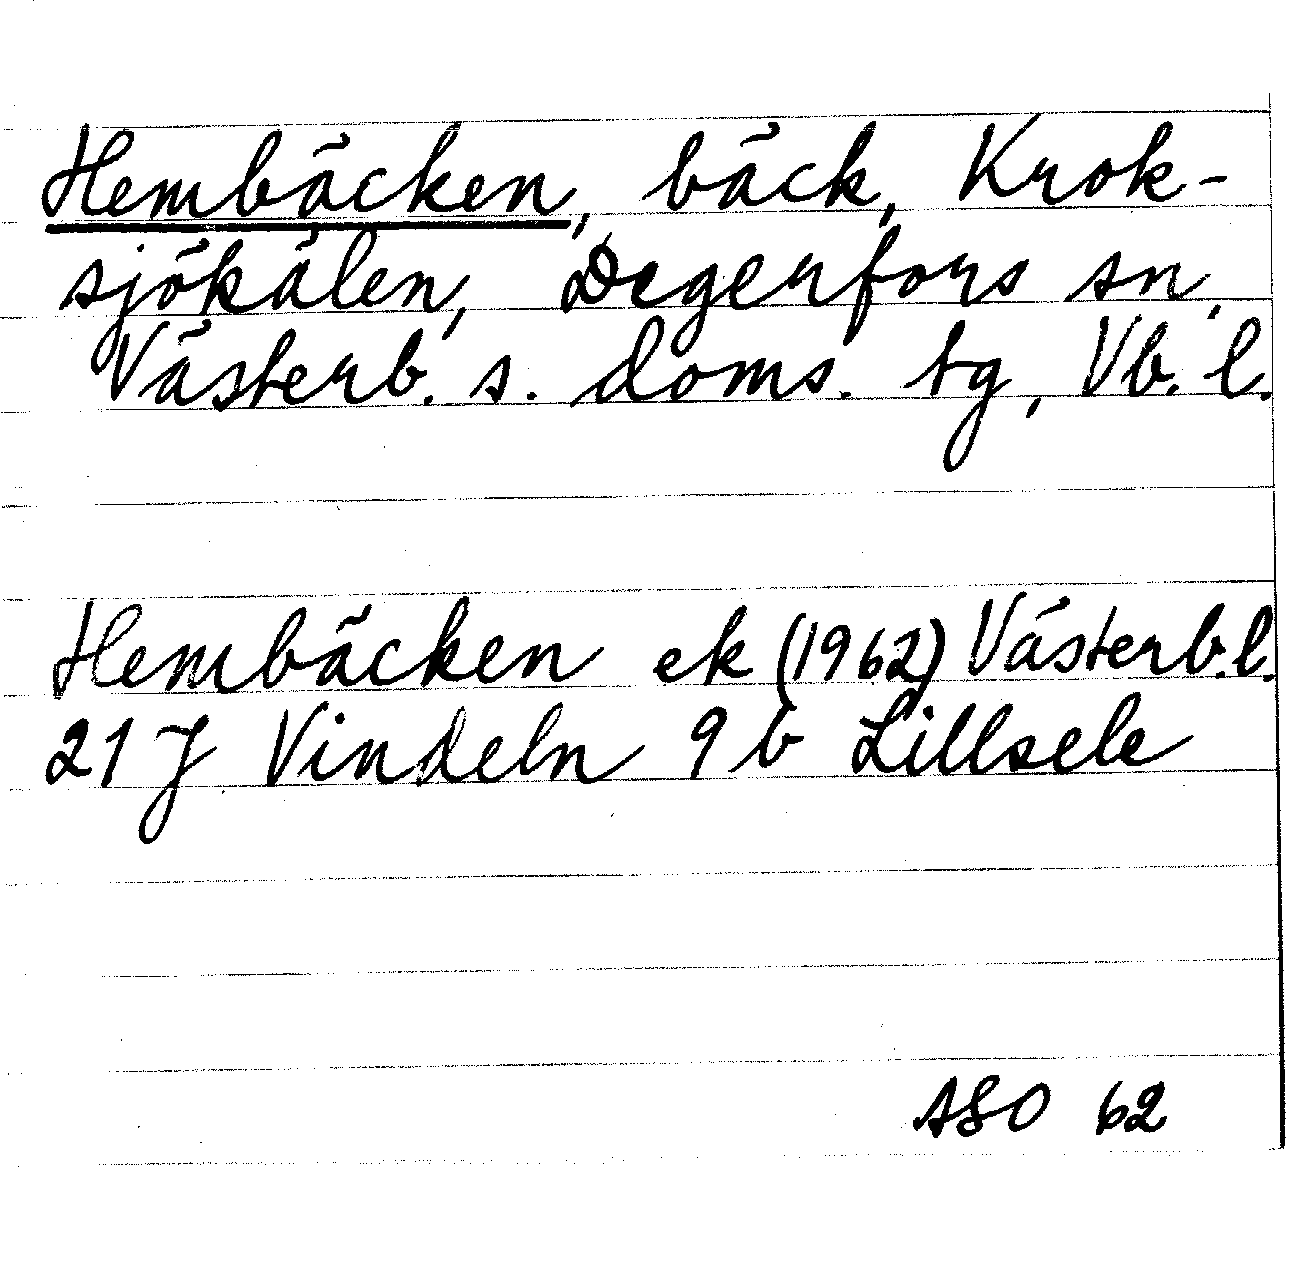 Hembäcken, bäck, Krok-
sjökälen, Degerfors sn,
Västerb. s. doms. tg, Vb. l.
Hembäcken ek (1962) Västerb.l.
21 J Vindeln 9 b Lillsele
ASO 62